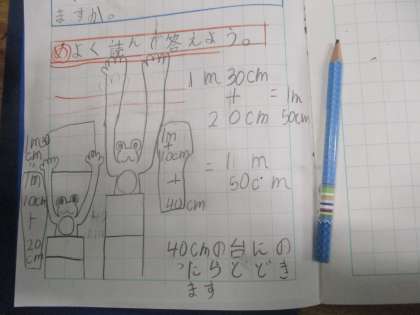 ますか。
めよく読んで答えよう。
1m30cm
+
20cm
=1m
50cm
1m30
cm
=
1m
10cm
+
20
cm
1m
+
10cm
+
40cm
=1m
50cm
40cmの台にの
ったらとどき
ます